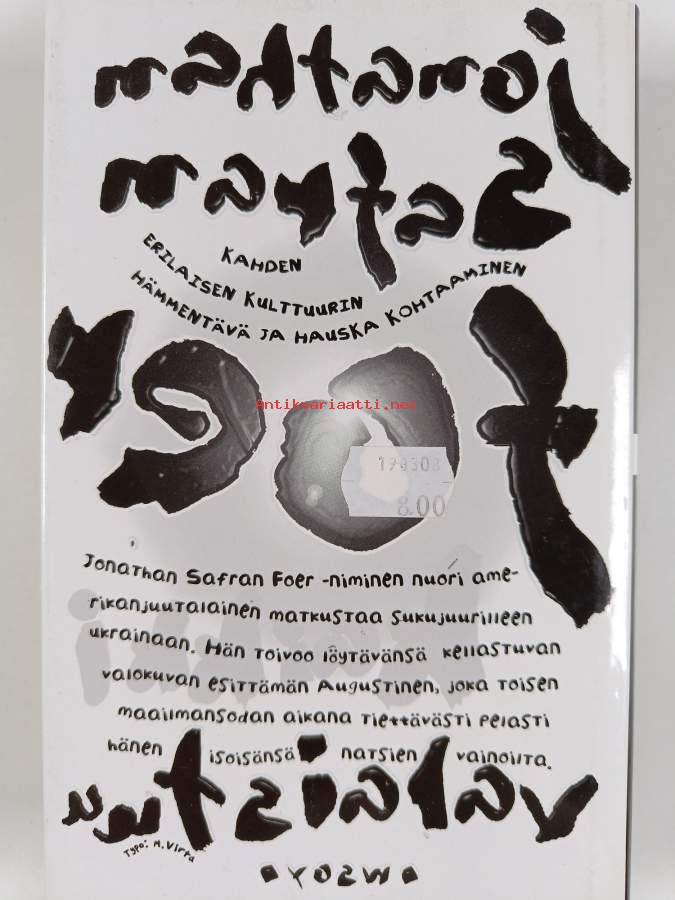 jonathan
safran
KAHDEN
ERILAISEN KULTTUURIN
HÄMMENTÄVÄ JA HAUSKA KOHTAAMINEN
foer
Antikvariaatti.net
8.00
Jonathan Safran Foer -niminen nuori ame-
rikanjuutalainen matkustaa sukujuurilleen
ukrainaan. Hän toivoo löytävänsä kellastuvan
valokuvan esittämän Augustinen, joka toisen
maailmansodan aikana tiettävästi pelasti
hänen isoisänsä natsien vainoilta.
valaistuu
Typo: M. Virta
WSOY